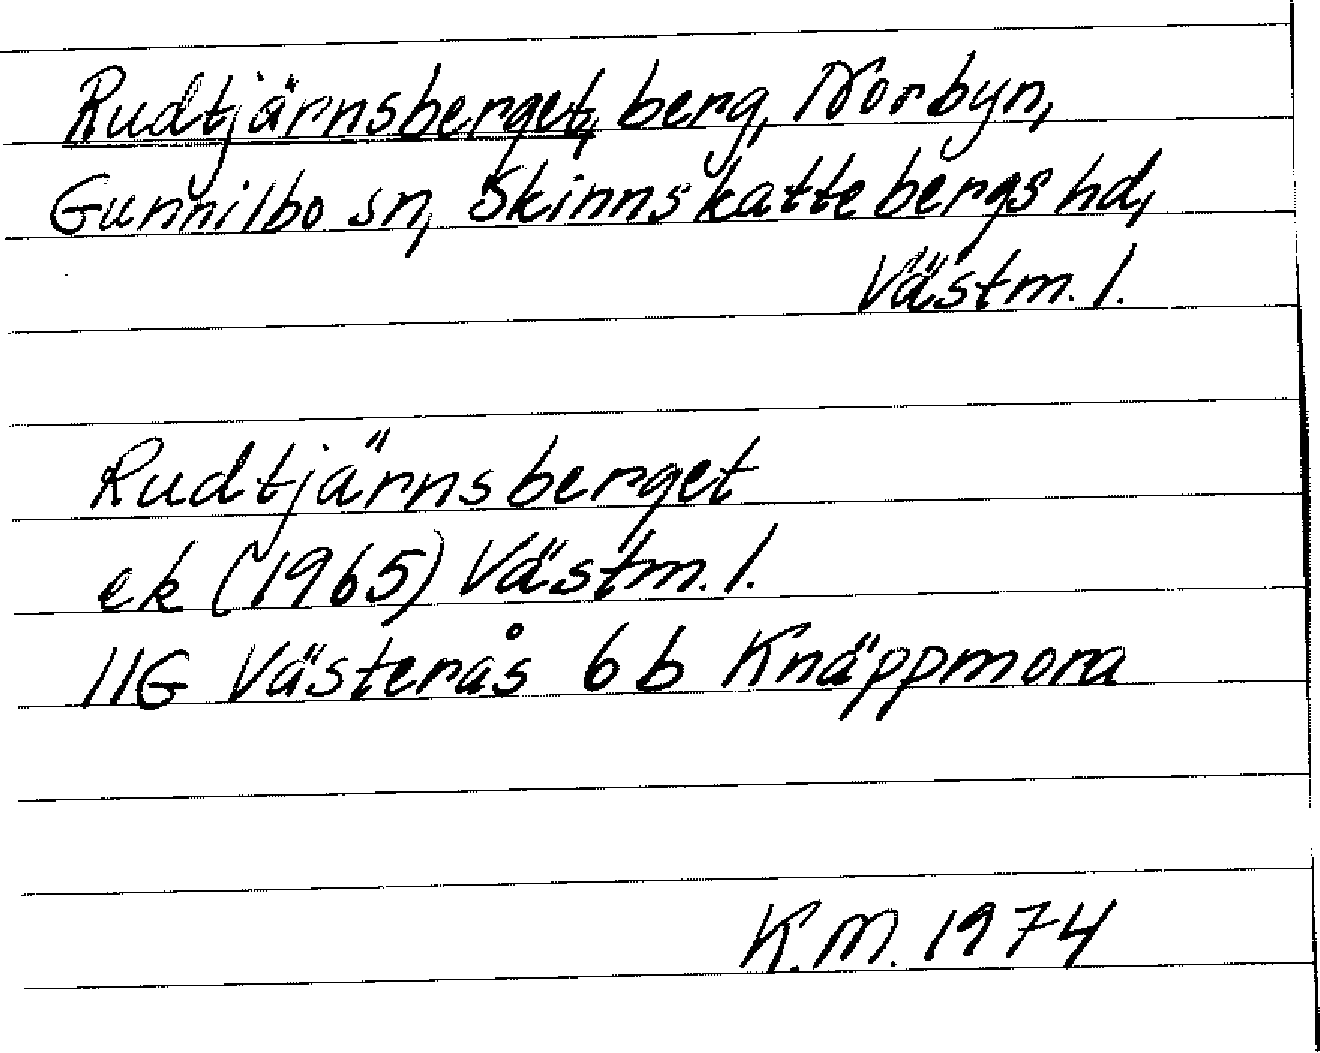 Rudtjärnsberget, berg, Norbyn,
Gunnilbo sn, Skinnskattebergs hd,
Västm. l.
Rudtjärnsberget
ek (1965) Västm. l.
11G Västerås 6b Knäppmora
K.M. 1974